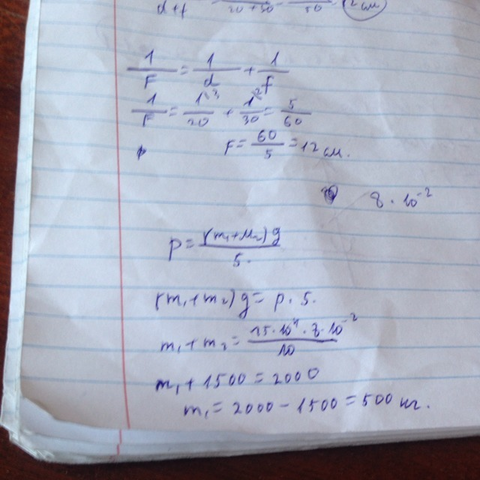 d+f 20+30 50 12 см
1/F = 1/d + 1/f
1/F = 1/20 + 1/30 = 5/60
F = 60/5 = 12 см.
8 · 10⁻²
p = (m₁+м₂)g / S.
(m₁+m₂)g = p · S.
m₁+m₂ = 25·10⁴·8·10⁻² / 10
m₁ + 1500 = 2000
m₁ = 2000 - 1500 = 500 кг.